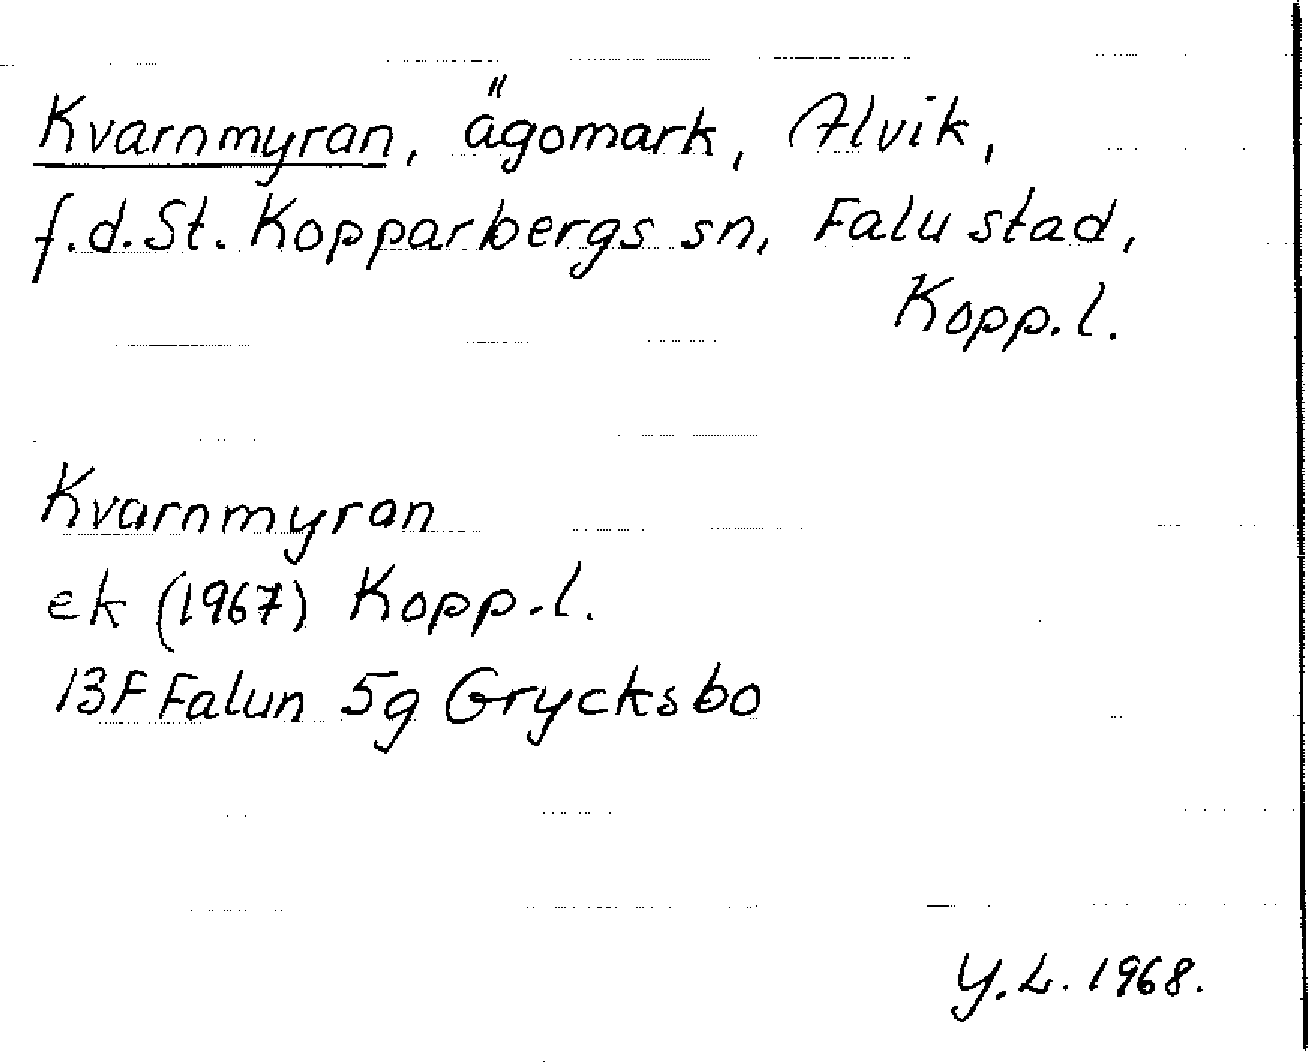 Kvarnmyran, ägomark, Alvik,
f.d. St. Kopparbergs sn, Falu stad,
Kopp. l.
Kvarnmyran
ek (1967) Kopp. l.
13F Falun 5g Grycksbo
Y.L. 1968.